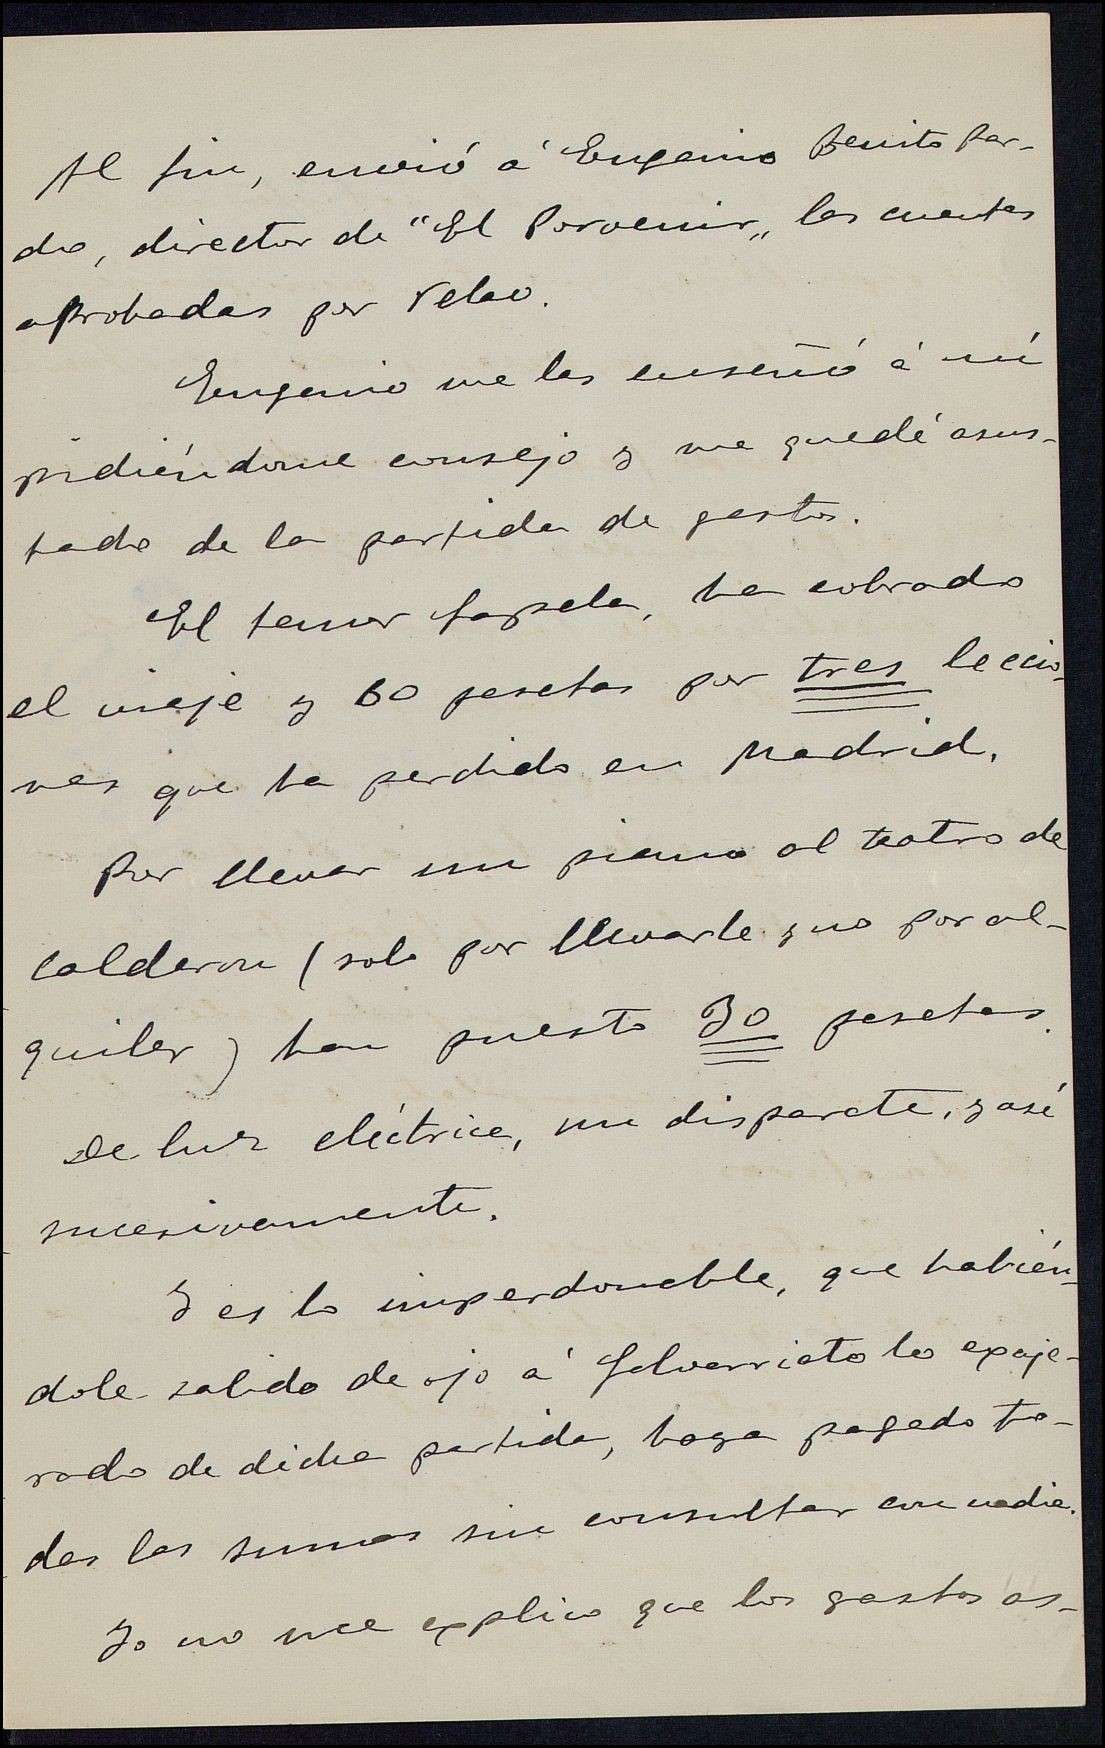 Al fin, envió á Eugenio Benito Par-
do, director de "El Porvenir„ las cuentas
aprobadas por Velao.
Eugenio me las enseñó á mí
pidiéndome consejo y me quedé asus-
tado de la partida de gastos.
El tenor ha cobrado
el viaje y 60 pesetas por tres leccio-
nes que ha perdido en Madrid.
Por llevar un piano al teatro de
Calderon (solo por llevarle y no por al-
quiler) han puesto 30 pesetas.
De luz eléctrica, un disparate, y asé
sucesivamente.
Y es lo imperdonable, que habién-
dole salido de ojo á lo exaje-
rado de dicha partida, haya pagado to-
das las sumas sin consultar con nadie.
Yo no me explico que los gastos as-